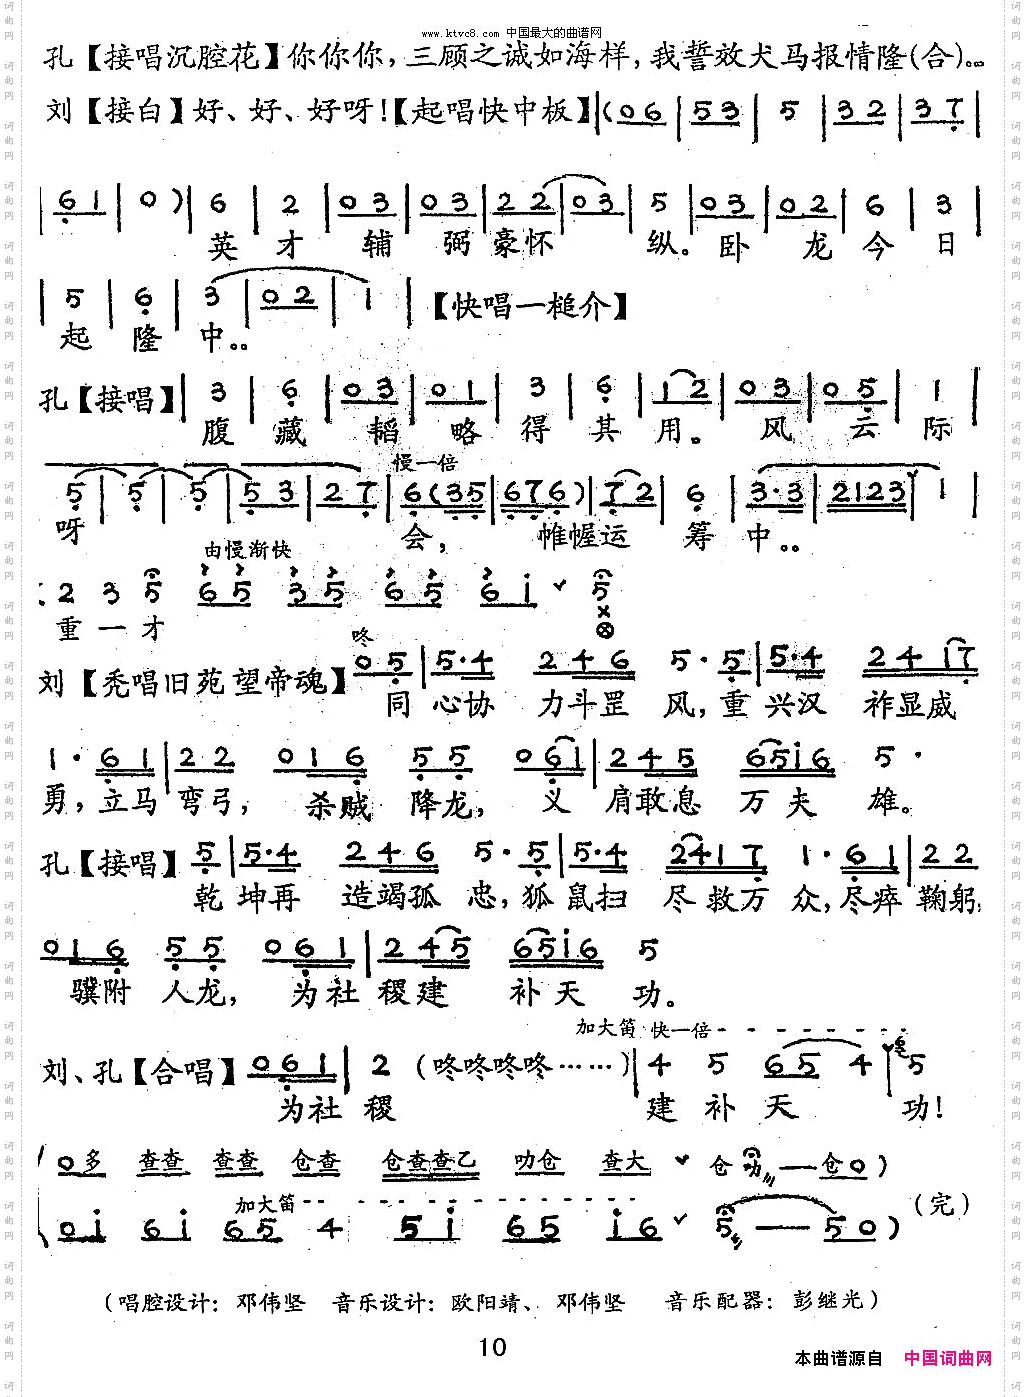 www.ktvc8.com 中国最大的曲谱网
孔【接唱沉腔花】你你你，三顾之诚如海样，我誓效犬马报情隆(合)。。
刘【接白】好、好、好呀！【起唱快中板】|(0 6 | 5 3 | 5 | 3 2 | 3 7 |
| 6 1 | 0 ) | 6 | 2 | 0 3 | 0 3 | 2 2 | 0 3 | 5 | 0 3 | 0 2 | 6 | 3
英 才 辅 弼 豪 怀 纵。卧 龙 今 日
| 5 | 6 | 3 | 0 2 | 1 | 【快唱一槌介】
起 隆 中。。
孔【接唱】| 3 | 6 | 0 3 | 0 1 | 3 | 6 | 1 2 | 0 3 | 0 5 | 1 |
腹 藏 韬 略 得 其 用。 风 云 际
慢一倍
5 | 5 | 5 | 5 3 | 2 7 | 6 (3 5 | 6 7 6 ) | 7 2 | 6 | 3·3 | 2 1 2 3 | 1 |
呀 会， 帷幄运 筹 中。。
由慢渐快
2 3 5 6 5 3 5 6 5 6 i 5
重 一 才
咚
刘【秃唱旧苑望帝魂】0 5 | 5·4 2 4 6 5·5 | 5·4 2 4 1 7
同 心协 力斗罡 风，重 兴汉 祚显威
1· 6 1 | 2 2 0 1 6 5 5 0 6 1 | 2 4 5 6 5 i 6 5·
勇，立马 弯弓， 杀贼 降龙， 义 肩敢息 万 夫 雄。
孔【接唱】5 | 5·4 2 4 6 5·5 | 5·4 2 4 1 7 1·6 1 | 2 2
乾 坤再 造竭孤 忠，狐 鼠扫 尽 救万 众，尽瘁 鞠躬；
0 1 6 5 5 0 6 1 | 2 4 5 6 5 i 6 5
骥附 人龙， 为社 稷建 补 天 功。
加大笛 快一倍
刘、孔【合唱】0 6 1 | 2 (咚咚咚咚……) | 4 5 6 5 4 | 5
为社 稷 建 补 天 功！
( 0多 查查 查查 仓查 仓查查乙 叻仓 查大 仓叻——仓0 )
加大笛
( 0 i 6 i 6 5 4 5 i 6 5 i 6 5 — 5 0 )
(完)
（唱腔设计：邓伟坚 音乐设计：欧阳靖、邓伟坚 音乐配器：彭继光）
10
本曲谱源自 中国词曲网